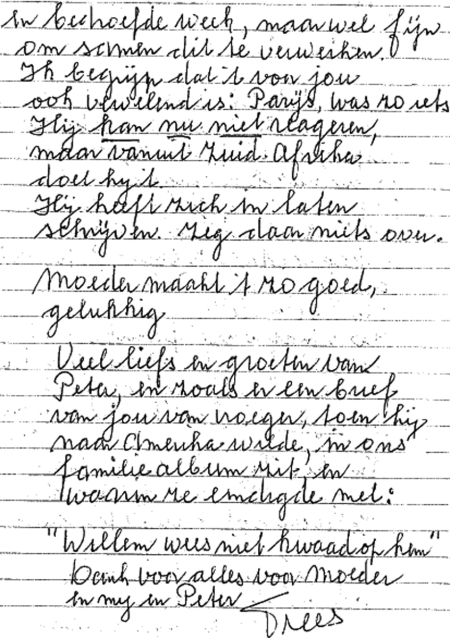 en behoefde week, maar wel fijn
om samen dit te verwerken.
Ik begrijp dat 't voor jou
ook vervelend is: Parijs, was zo iets
Hij kan nu niet reageren,
maar vanuit Zuid-Afrika
doet hij 't.
Hij heeft zich in laten
schrijven. Zeg daar niets over.
Moeder maakt 't zo goed,
gelukkig
Veel liefs en groeten van
Peter, en zoals er een brief
van jou van vroeger, toen hij
naar Amerika wilde, in ons
familiealbum zit, en
waarin ze eindigde met:
"Willem wees niet kwaad op hem"
Dank voor alles voor Moeder
en mij en Peter
Trees